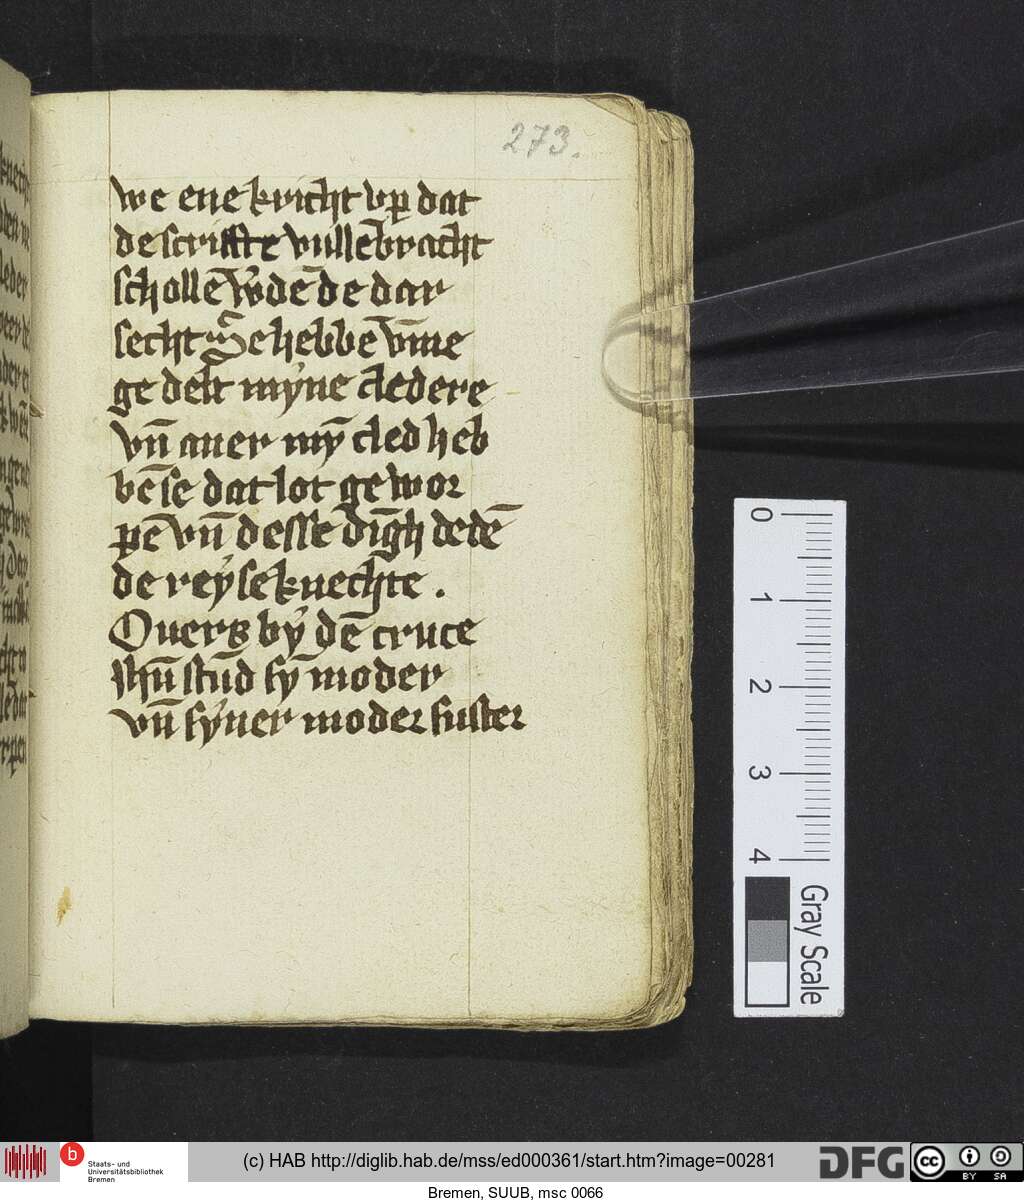 273.
we ene kricht vp dat
de scriffte vullēbracht
schollē w̄dē de dar
secht Se hebbē v̄me
ge delt mẏne cledere
vn̄ auer mȳ cled heb
bē se dat lot ge wor
pē vn̄ desse dīgh dedē
de reẏse knechte .
Ouers bẏ dē cruce
ihū stūd sȳ moder
vn̄ sẏner moder suster
0
1
2
3
4
Gray Scale
b
Staats- und
Universitätsbibliothek
Bremen
(c) HAB http://diglib.hab.de/mss/ed000361/start.htm?image=00281
DFG
cc
BY SA
Bremen, SUUB, msc 0066